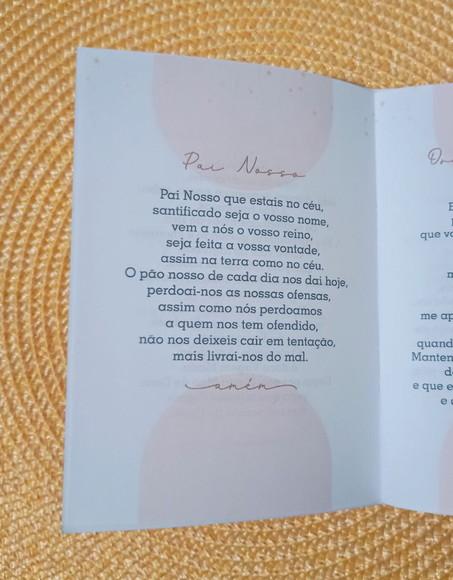 Pai Nosso
Pai Nosso que estais no céu,
santificado seja o vosso nome,
vem a nós o vosso reino,
seja feita a vossa vontade,
assim na terra como no céu.
O pão nosso de cada dia nos dai hoje,
perdoai-nos as nossas ofensas,
assim como nós perdoamos
a quem nos tem ofendido,
não nos deixeis cair em tentação,
mais livrai-nos do mal.
amém
que
me
quand
Manten
e que e
e